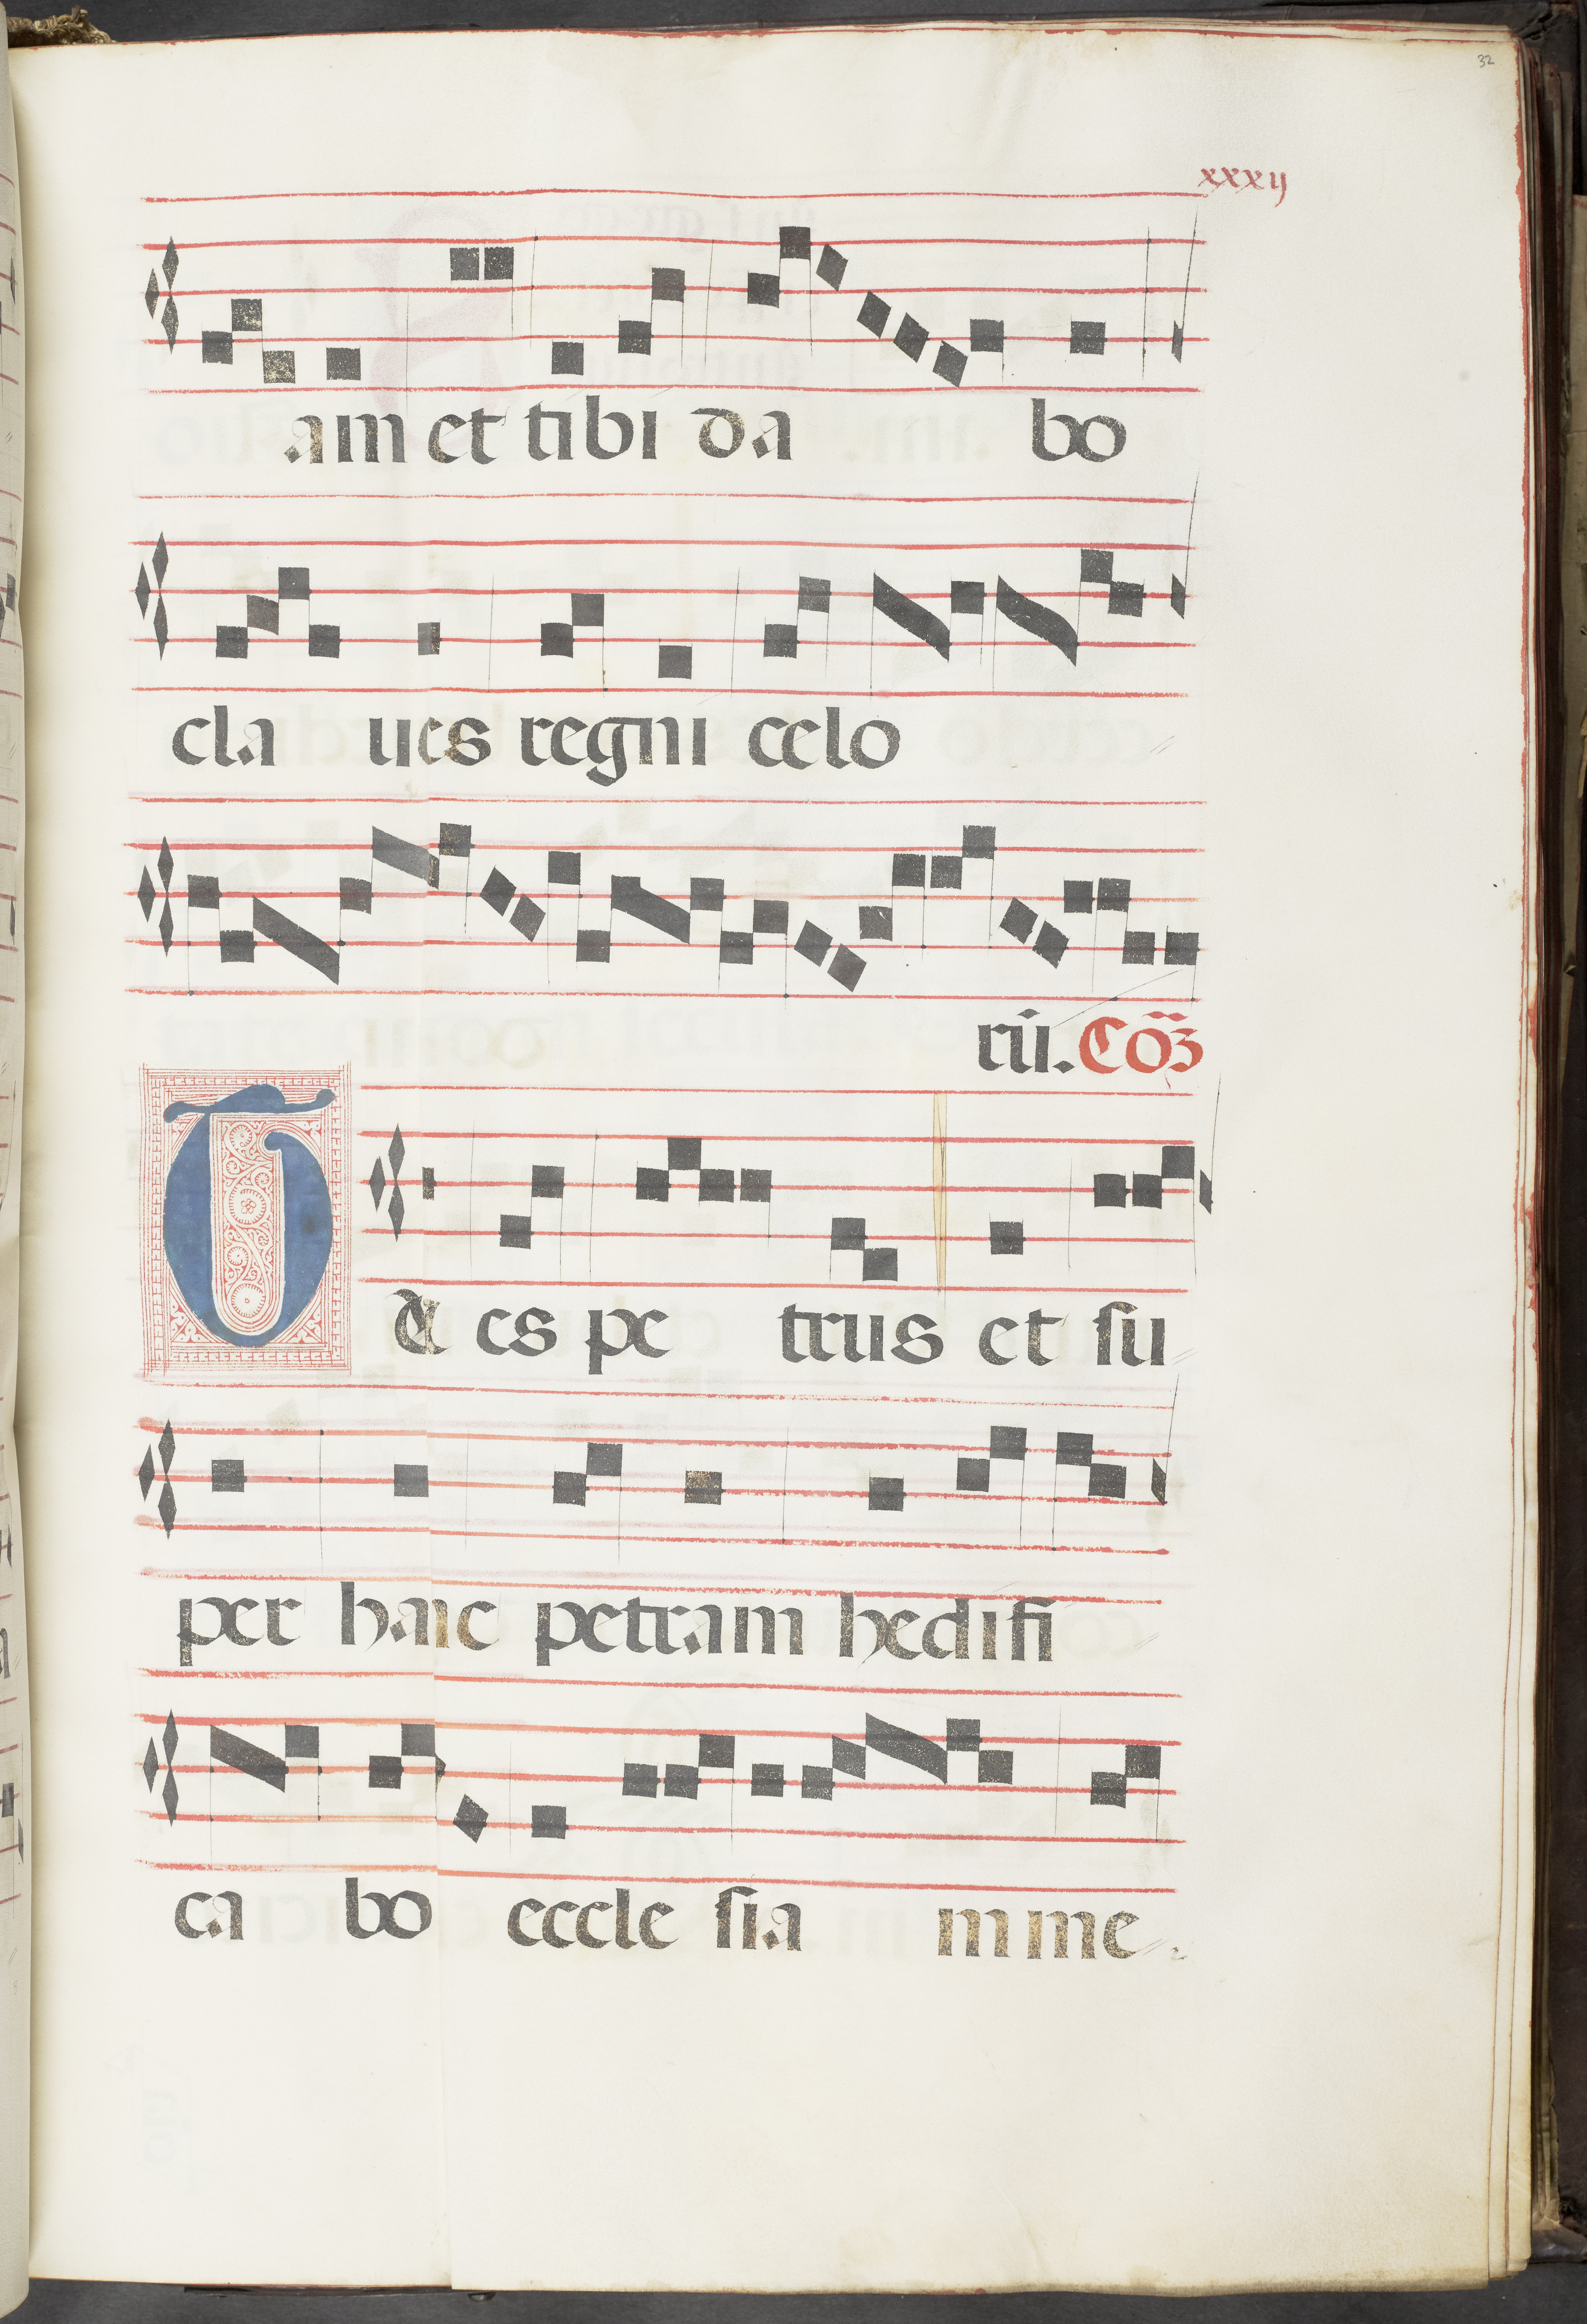 32
xxxij
am et tibi da bo
cla ues regni celo
rū. Cō̃
TU es pe trus et su
per hanc petram hedifi
ca bo eccle sia m me